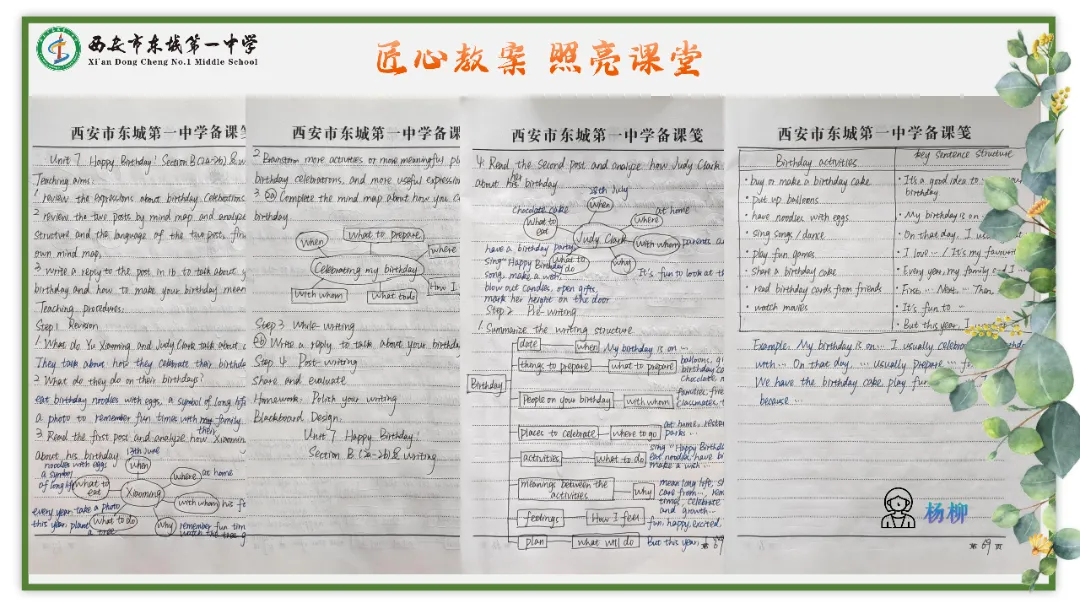 西安市东城第一中学
Xi'an Dong Cheng No.1 Middle School
匠心教案 照亮课堂
西安市东城第一中学备课笺
Unit 7 Happy Birthday! Section B (2a-2b) & w
Teaching aims:
1 review the expressions about birthday celebrations
2 review the two posts by mind map and analyze
structure and the language of the two post, fin
own mind map.
3 Write a reply to the post in 1b to talk about y
birthday and how to make your birthday mean
Teaching procedures:
Step 1 Revision
1 What do Yu Xiaoming and Judy Clark talk about
They talk about how they celebrate their birthda
2 What do they do on their birthdays?
eat birthday noodles with eggs, a symbol of long life
a photo to remember fun times with my family
their
3 Read the first post and analyze how Xiaomin
about his birthday
13th June
noodles with eggs
a symbol
of long life
when
where
at home
What to
eat
Xiaoming
with whom
his f
every year take a photo
this year plant
a tree
What to do
Why
remember fun tim
watch the tree g
西安市东城第一中学备课
2 Brainstorm more activities or more meaningful pl
birthday celebrations, and more useful expression
3 2a Complete the mind map about how you c
birthday.
When
What to prepare
where
Celebrating my birthday
With whom
What to do
How I
Step 3 While-writing
2b Write a reply to talk about your birthday
Step 4 Post writing
Share and evaluate
Homework: Polish your writing
Blackboard Design:
Unit 7 Happy Birthday!
Section B (2a-2b) & writing
西安市东城第一中学备课笺
4 Read the second post and analyze how Judy Clark
about his birthday
her
28th July
when
chocolate cake
What to
eat
where
at home
Judy Clark
with whom
parents
have a birthday party
sing "Happy Birthday"
song, make a wish
blow out candles, open gifts,
mark her height on the door
What to
do
what
It's fun to look at th
Step 2 Pre-writing
1 Summarize the writing structure
Birthday
date
when
My birthday is on ...
things to prepare
what to prepare
balloons,
birthday
chocolate,
People on your birthday
with whom
families,
classmates,
places to celebrate
where to go
at home,
parks ...
activities
what to do
sing "Happy Birth
eat noodles, have bi
make a wish ...
meanings between the
activities
why
mean long life,
care from ...,
times, celebrate
and growth ...
feelings
How I feel
fun, happy, excited
plan
what will do
But this year,
西安市东城第一中学备课笺
Birthday activities
key Sentence Structure
· buy or make a birthday cake
· put up balloons
· have noodles with eggs
· sing songs / dance
· play fun games
· share a birthday cake
· read birthday cards from friends
· watch movies
· It's a good idea to
birthday
· My birthday is on
· On that day, I
· I love ... / It's my favouri
· Every year, my family & I
· First ... Next ... Then
· It's fun to ...
· But this year, I
Example: My birthday is on ... I usually celebra
with ... On that day, ... usually prepare ...
We have the birthday cake, play fun
because ...
杨柳
第 69 页